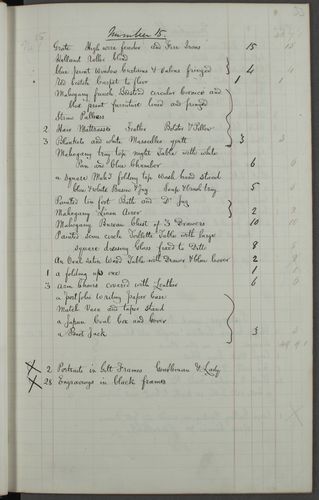 Number 15.
Grate High wire fender and Fire Irons 15
Holland Roller Blind
blue print Window Curtains & Valens fringed 4
Red British Carpet to floor 1
Mahogany french Bedsted circular Cornice and
blue print furniture lined and fringed
Straw Palliass
2 Hair Mattrasses Feather Bolster & Pillow
3 Blankets and white Marseilles quilt 3
Mahogany tray top night Table with white
Pan and blue Chamber 6
a Square Mah'y folding top Wash hand stand
blue & white Bason & Jug Soap & Brush tray 5
Painted tin foot Bath and D° Jug
Mahogany Linen Airer 2
Mahogany Bureau Chest of 3 Drawers 10
Painted semi circle Toilette Table with large
square dressing Glass fixed to Ditto 8
An Oval satin Wood Table with Drawer & blue cover 2
1 a folding up one 1
3 Arm Chairs covered with Leather 6
a portfolio Writing paper Case
Match Vase and taper stand
a Japan Coal box and cover
a Boot Jack 3
2 Portraits in Gilt Frames Gentleman & Lady
28 Engravings in black frames